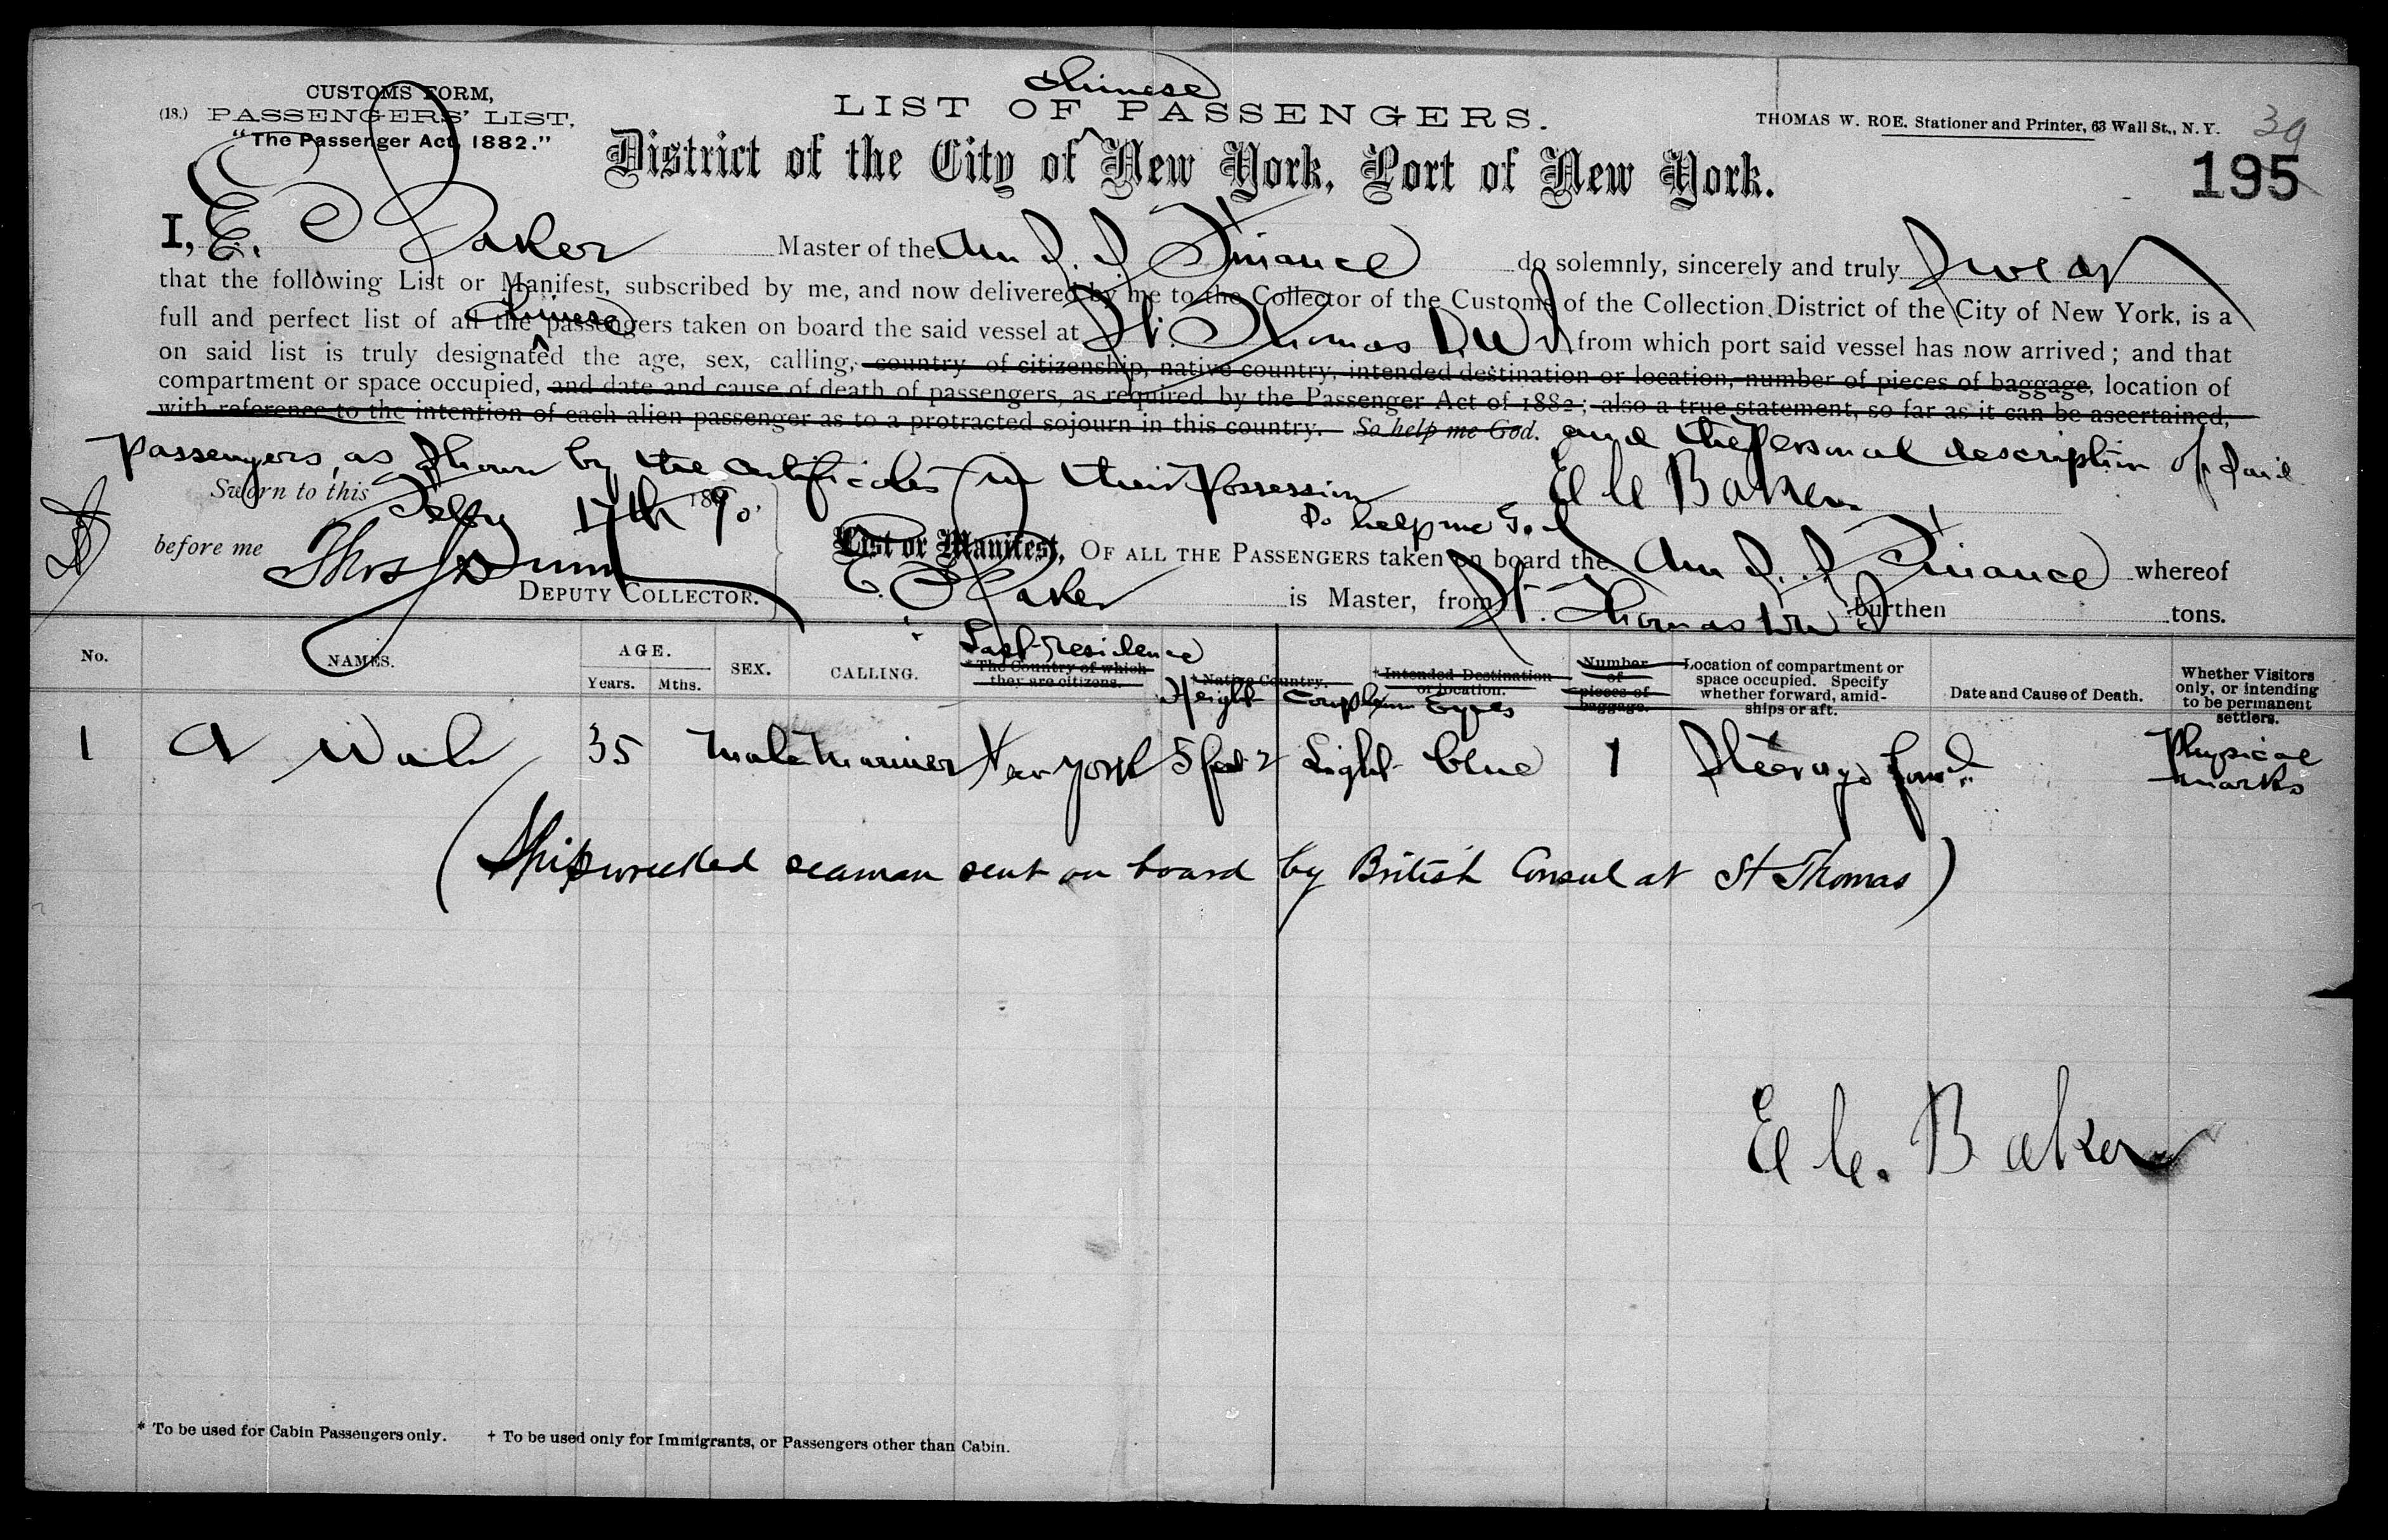 CUSTOMS FORM,
(18.) PASSENGERS' LIST.
"The Passenger Act, 1882."
Chinese
LIST OF PASSENGERS.
District of the City of New York, Port of New York.
THOMAS W. ROE, Stationer and Printer, 63 Wall St., N. Y.
39
195
I, E. C Baker Master of the Am S. S. Finance do solemnly, sincerely and truly Swear
that the following List or Manifest, subscribed by me, and now delivered by me to the Collector of the Customs of the Collection District of the City of New York, is a
full and perfect list of all the Chinese passengers taken on board the said vessel at St. Thomas D.W.I from which port said vessel has now arrived; and that
on said list is truly designated the age, sex, calling, country of citizenship, native country, intended destination or location, number of pieces of baggage, location of
compartment or space occupied, and date and cause of death of passengers, as required by the Passenger Act of 1882; also a true statement, so far as it can be ascertained,
with reference to the intention of each alien passenger as to a protracted sojourn in this country. So help me God. and the personal description of said
passengers, as shown by the certificates in their possession
So help me God
Sworn to this Feby 17th 1890.
E C Baker
before me Thos Dunn
DEPUTY COLLECTOR.
List or Manifest, OF ALL THE PASSENGERS taken on board the Am S. S. Finance whereof
E. C Baker is Master, from St. Thomas D.W.I burthen tons.
No. NAMES. AGE. Years. Mths. SEX. CALLING. Last residence * The Country of which they are citizens. † Native Country. Height Complexion Eyes † Intended Destination or location. Number of pieces of baggage. Location of compartment or space occupied. Specify whether forward, amidships or aft. Date and Cause of Death. Whether Visitors only, or intending to be permanent settlers.
Physical marks
1 A Wah 35 Male Mariner New York 5 feet 2 Light blue 1 Steerage forwd.
(Shipwrecked seaman sent on board by British Consul at St Thomas)
E C. Baker
* To be used for Cabin Passengers only. † To be used only for Immigrants, or Passengers other than Cabin.